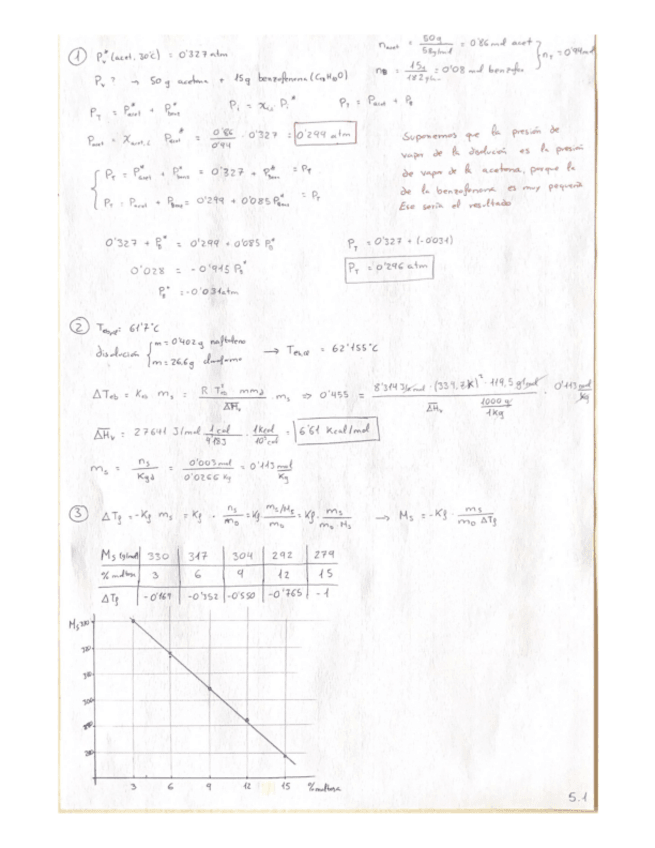 ① Pᵥ* (acet, 30ºC) = 0'327 atm
n acet = 50 g / 58 g/mol = 0'86 mol acet } nT = 0'94 mol
Pᵥ? → 50 g acetona + 15 g benzofenona (C₁₃H₁₀O)
nB = 15 g / 182 g/mol = 0'08 mol benzofen
PT = P*acet + P*benz   Pi = xi,l Pi*   PT = Pacet + PB
Pacet = Xacet,l P*acet = 0'86/0'94 · 0'327 = 0'299 atm
Suponemos que la presión de
vapor de la disolución es la presión
de vapor de la acetona, porque la
de la benzofenona es muy pequeña
Ese sería el resultado
PT = P*acet + P*benz = 0'327 + P*benz = PT
PT = Pacet + Pbenz = 0'299 + 0'085 P*benz = PT
0'327 + P*B = 0'299 + 0'085 P*B   PT = 0'327 + (-0'031)
0'028 = -0'915 P*B   PT = 0'296 atm
P*B = -0'031 atm
② T : 61'7ºC
disolución { m = 0'402 g naftaleno
m = 26'6 g cloroformo → = 62'155ºC
ΔTeb = Keb ms = R T²eb mmd / ΔH̄v · ms ⇒ 0'455 = 8'314 J/K mol · (334,7 K)² · 119,5 g/mol / ΔH̄v 1000 g/1 Kg · 0'113 mol/Kg
ΔH̄v = 27691 J/mol · 1 cal/4'18 J · 1 Kcal/10³ cal = 6'61 Kcal/mol
ms = ns/Kgd = 0'003 mol/0'0266 Kg = 0'113 mol/Kg
③ ΔTf = -Kf ms = Kf · ns/mD = Kf ms/Ms/mD = Kf · ms/mD·Ms → Ms = -Kf · ms/mD ΔTf
Ms (g/mol) 330 317 304 292 279
% maltosa 3 6 9 12 15
ΔTf -0'169 -0'352 -0'550 -0'765 -1
Ms
3 6 9 12 15 % maltosa
5.1